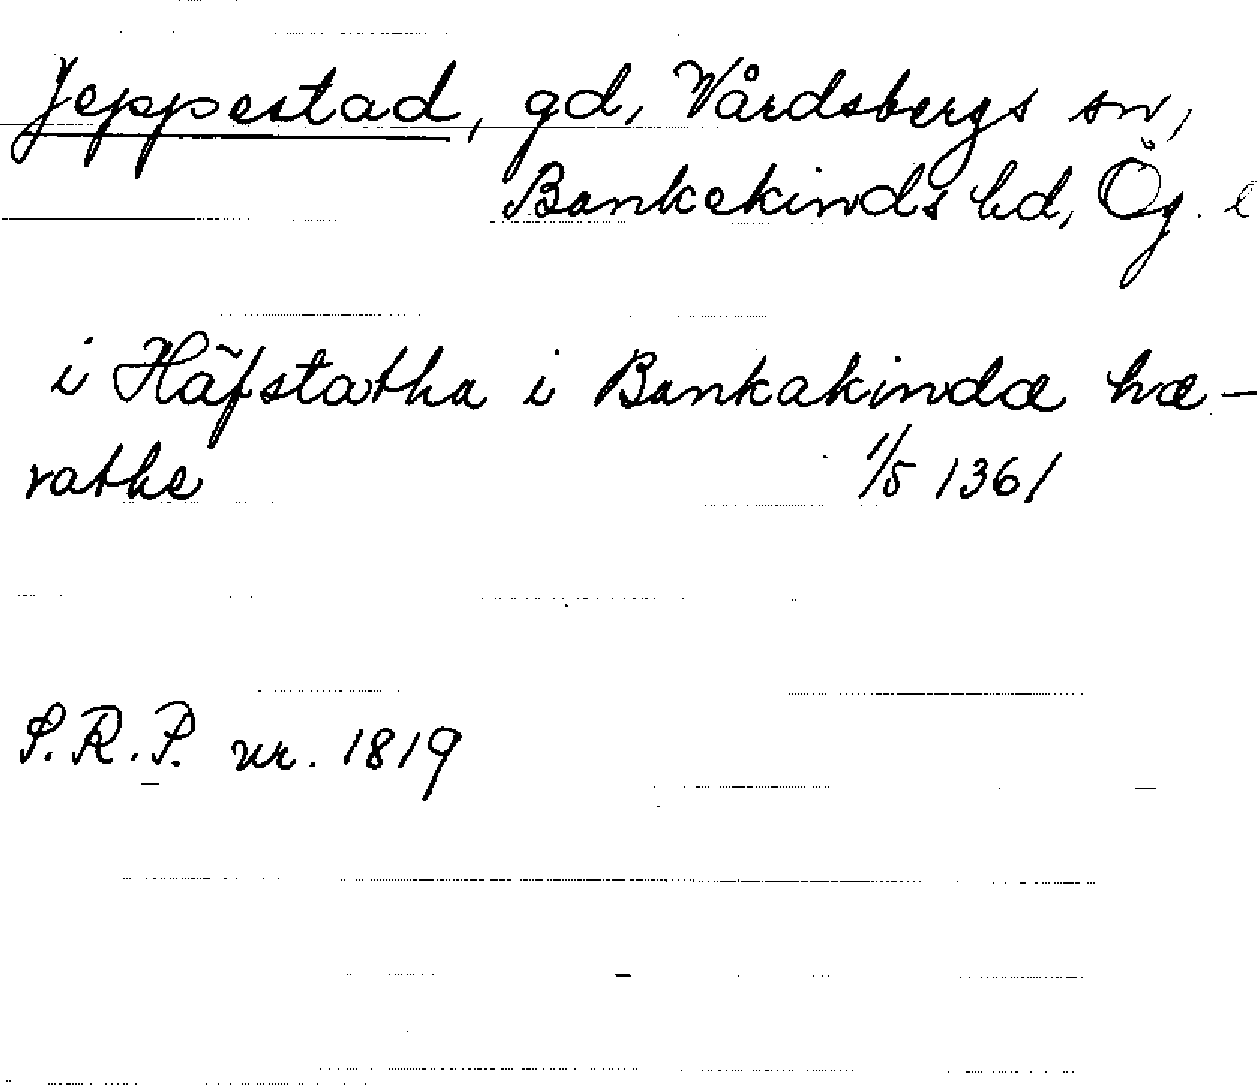 Jeppestad, gd, Vårdsbergs sn,
Bankekinds hd, Ög. l
i Häfstatha i Bankakindæ hæ-
rathe 1/5 1361
S.R.P. nr. 1819